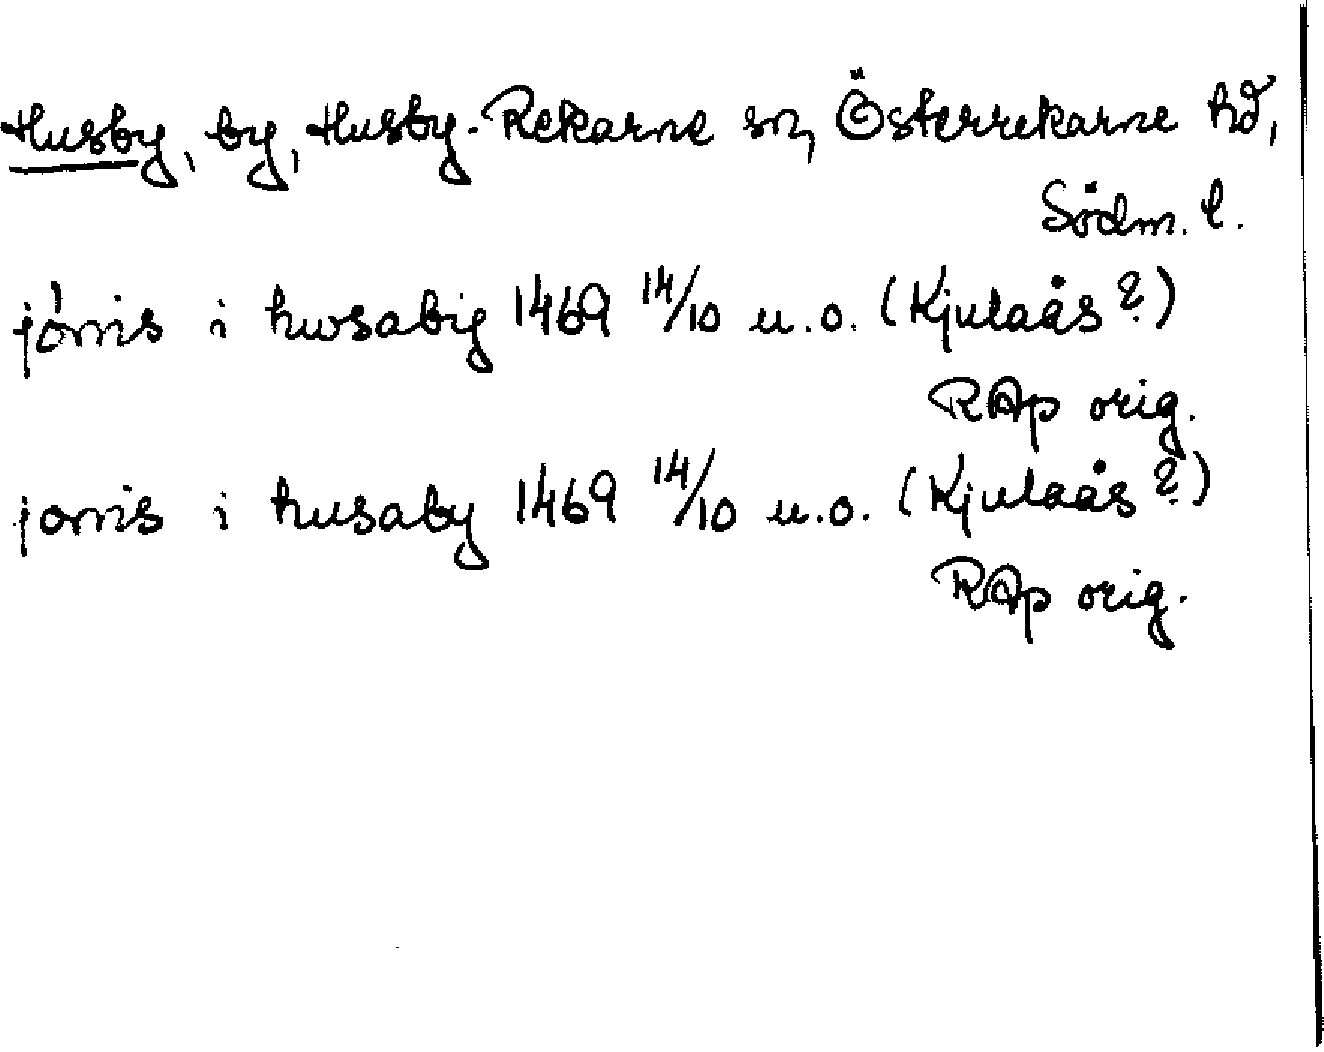 Husby, by, Husby-Rekarne sn, Österrekarne hd,
Södm. l.
jónis i hwsabig 1469 14/10 u.o. (Kjulaås?)
RAp orig.
jonis i husaby 1469 14/10 u.o. (Kjulaås?)
RAp orig.